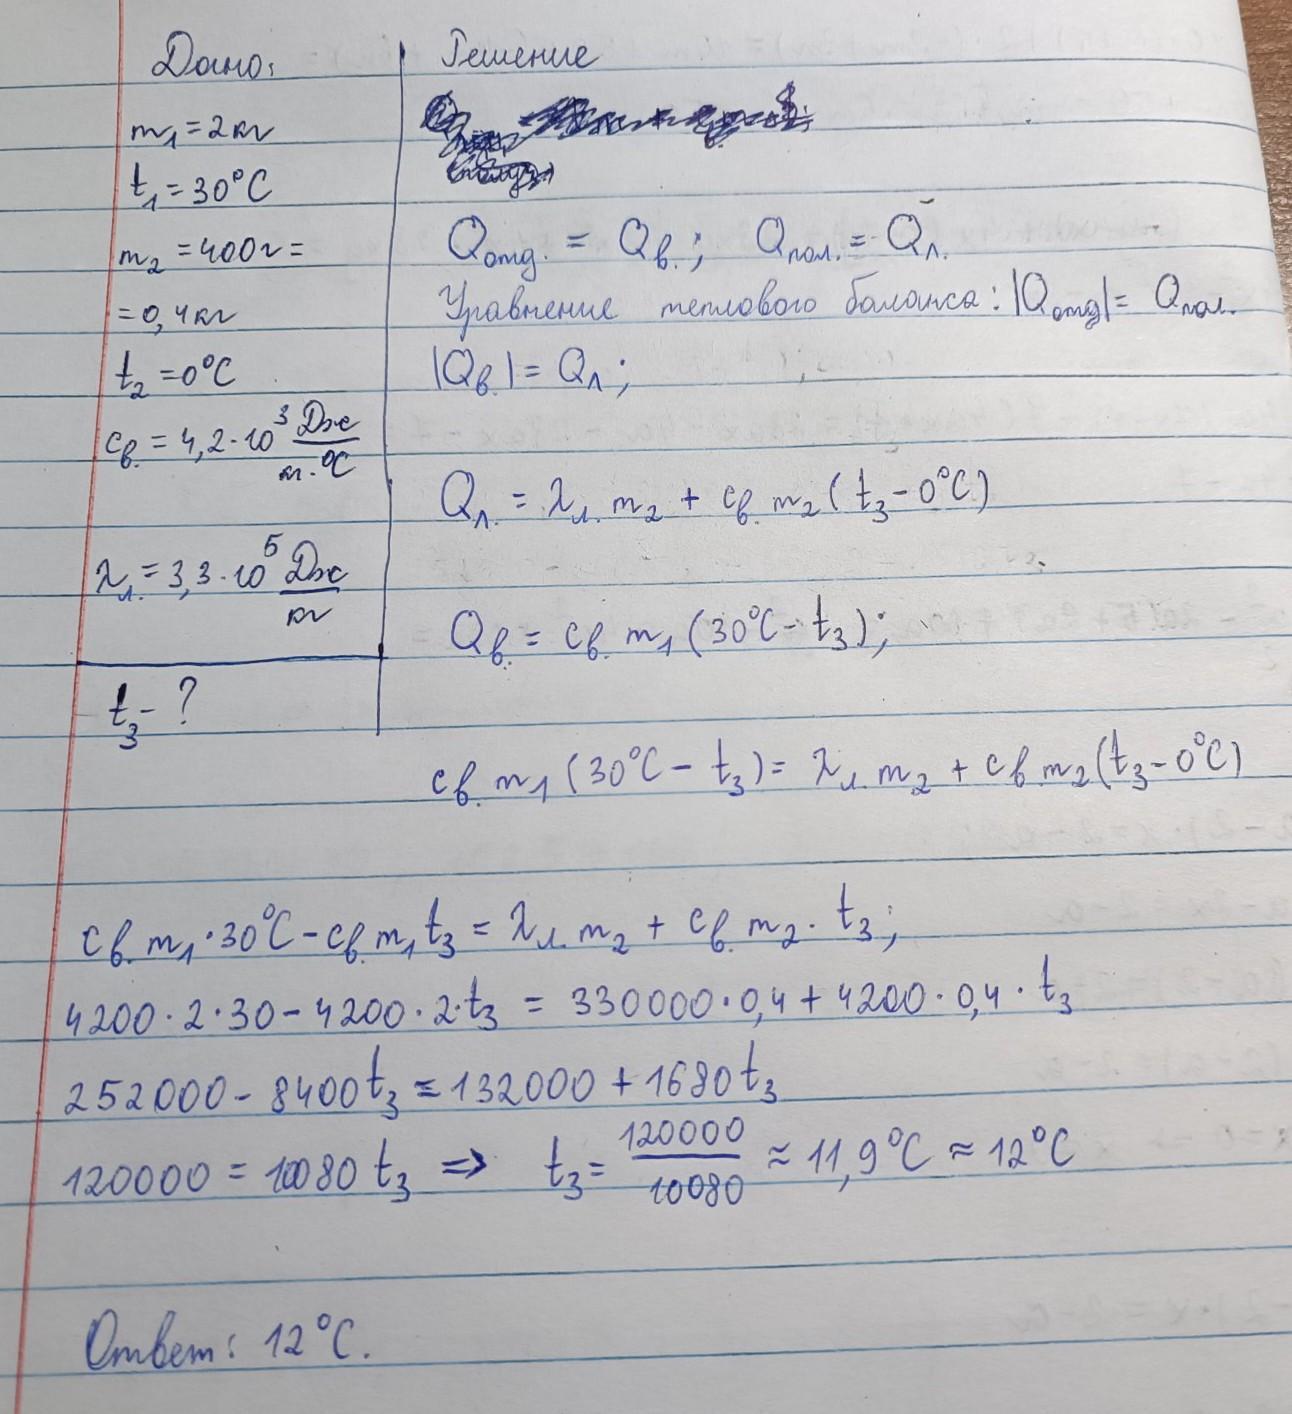 Дано:
m₁ = 2 кг
t₁ = 30°C
m₂ = 400 г =
= 0,4 кг
t₂ = 0°C
cв. = 4,2·10³ Дж/кг·°C
λл. = 3,3·10⁵ Дж/кг
t₃ - ?
Решение
Qотд. = Qв.; Qпол. = Qл.
Уравнение теплового баланса: |Qотд| = Qпол.
|Qв.| = Qл;
Qл. = λл. m₂ + cв. m₂ (t₃ - 0°C)
Qв. = cв. m₁ (30°C - t₃);
cв. m₁ (30°C - t₃) = λл. m₂ + cв. m₂ (t₃ - 0°C)
cв. m₁ · 30°C - cв. m₁ t₃ = λл. m₂ + cв. m₂ · t₃;
4200 · 2 · 30 - 4200 · 2 · t₃ = 330000 · 0,4 + 4200 · 0,4 · t₃
252000 - 8400 t₃ = 132000 + 1680 t₃
120000 = 10080 t₃ => t₃ = 120000/10080 ≈ 11,9°C ≈ 12°C
Ответ: 12°C.